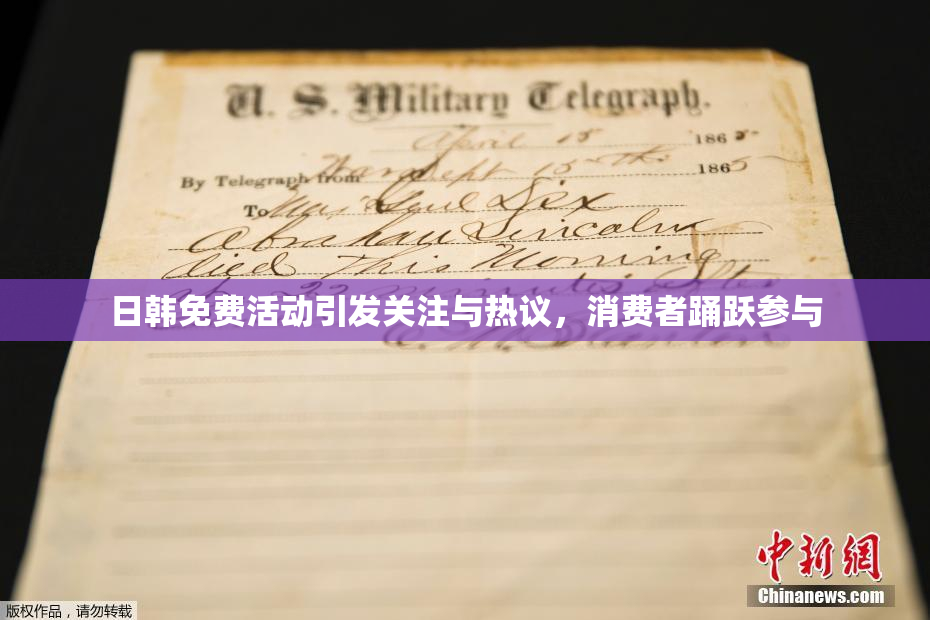 U. S. Military Telegraph.
April 15 1865
By Telegraph from War Dept 15th 1865
To Maj Genl Dix
Abraham Lincoln
died This Morning
at 22 minutes after
日韩免费活动引发关注与热议，消费者踊跃参与
E. M. Stanton
中新网
Chinanews.com
版权作品，请勿转载